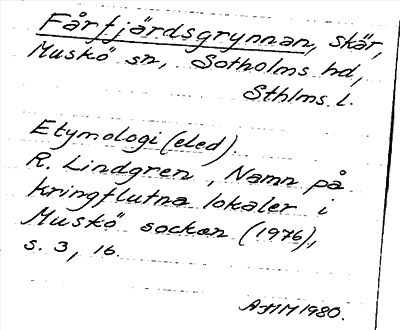 Fårfjärdsgrynnan, skär,
Muskö sn, Sotholms hd,
Sthlms l.
Etymologi (eled).
R. Lindgren, Namn på
kringflutna lokaler i
Muskö socken (1976),
s. 3, 16.
AMM 1980.